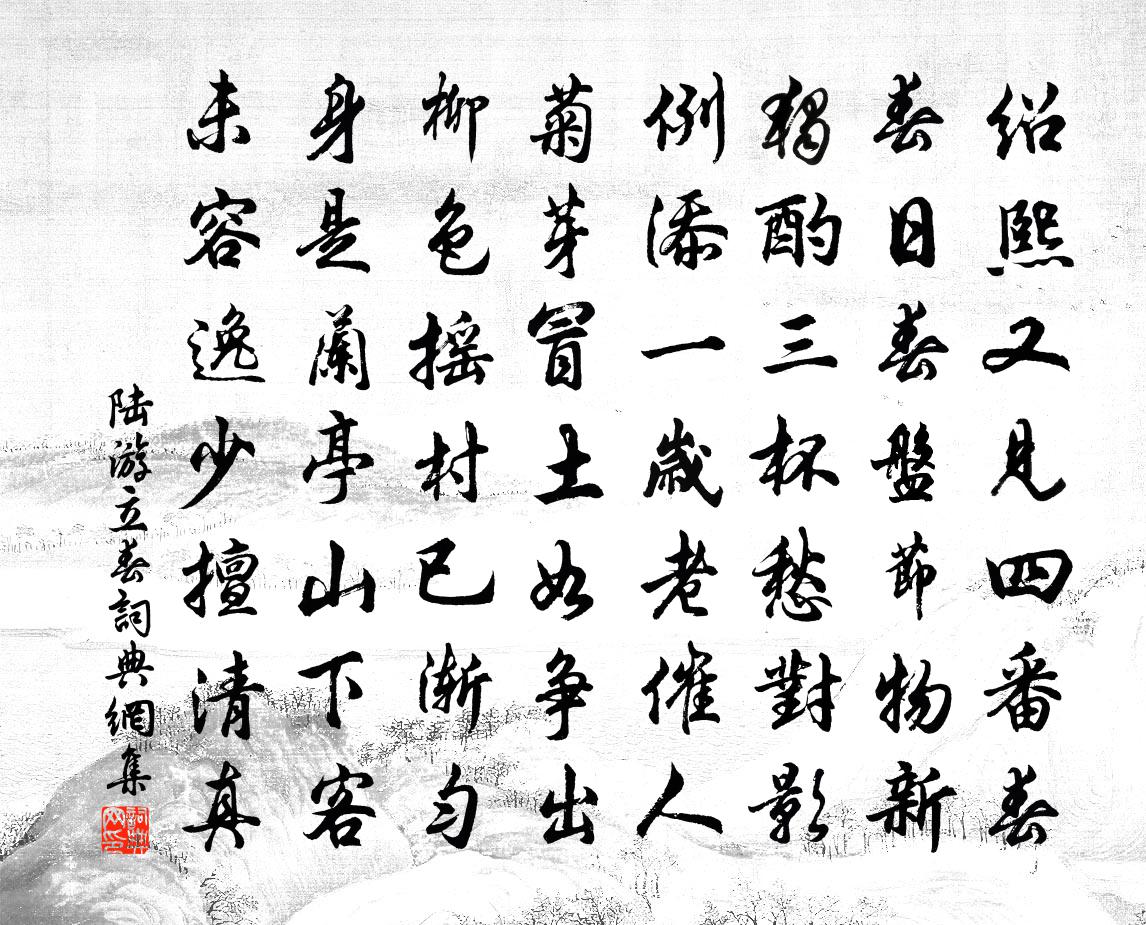 绍熙又见四番春
春日春盤節物新
獨酌三杯愁對影
例添一歲老催人
菊芽冒土如争出
柳色摇村已漸匀
身是蘭亭山下客
未容逸少擅清真
陆游立春詞典網集